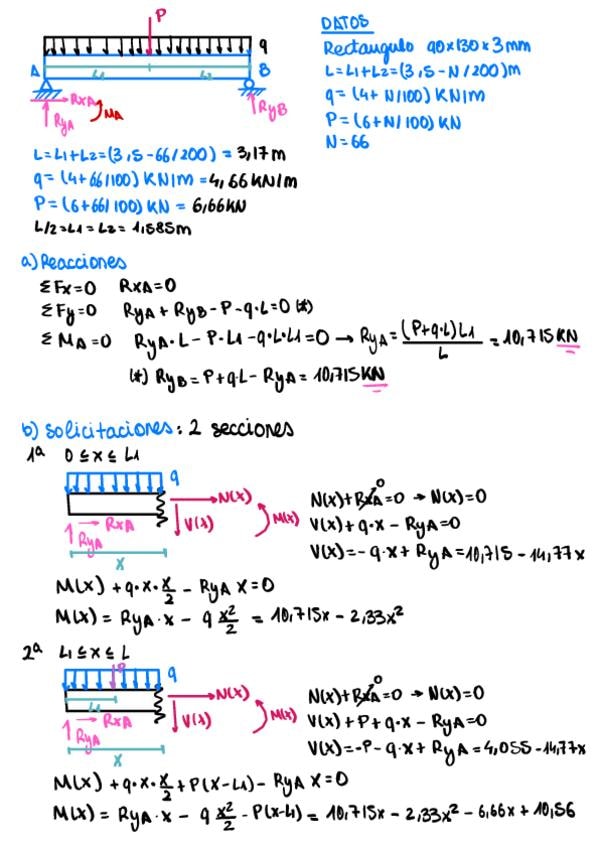 P
DATOS
q
Rectangulo 90x130x3mm
A L1 L2 B
L=L1+L2=(3,5-N/200)m
RxA MA RyB
q=(4+N/100) KN/m
RyA
P=(6+N/100) KN
N=66
L=L1+L2=(3,5-66/200)=3,17m
q=(4+66/100) KN/m=4,66KN/m
P=(6+66/100) KN = 6,66KN
L/2=L1=L2=1,585m
a) Reacciones
ΣFx=0 RxA=0
ΣFy=0 RyA+RyB-P-q·L=0 (*)
ΣMA=0 RyA·L-P·L1-q·L·L1=0 → RyA=(P+q·L)L1/L=10,715KN
(*) RyB=P+q·L-RyA=10,715KN
b) Solicitaciones: 2 secciones
1ª 0≤x≤L1
q
N(x) V(x) M(x)
RxA
RyA
x
N(x)+RxA=0 → N(x)=0
0
V(x)+q·x-RyA=0
V(x)=-q·x+RyA=10,715-14,77x
M(x)+q·x·x/2-RyA x=0
M(x)=RyA·x-q x²/2=10,715x-2,33x²
2ª L1≤x≤L
P q
L1 N(x) V(x) M(x)
RxA
RyA
x
N(x)+RxA=0 → N(x)=0
0
V(x)+P+q·x-RyA=0
V(x)=-P-q·x+RyA=4,055-14,77x
M(x)+q·x·x/2+P(x-L1)-RyA x=0
M(x)=RyA·x-q x²/2-P(x-L1)=10,715x-2,33x²-6,66x+10,56